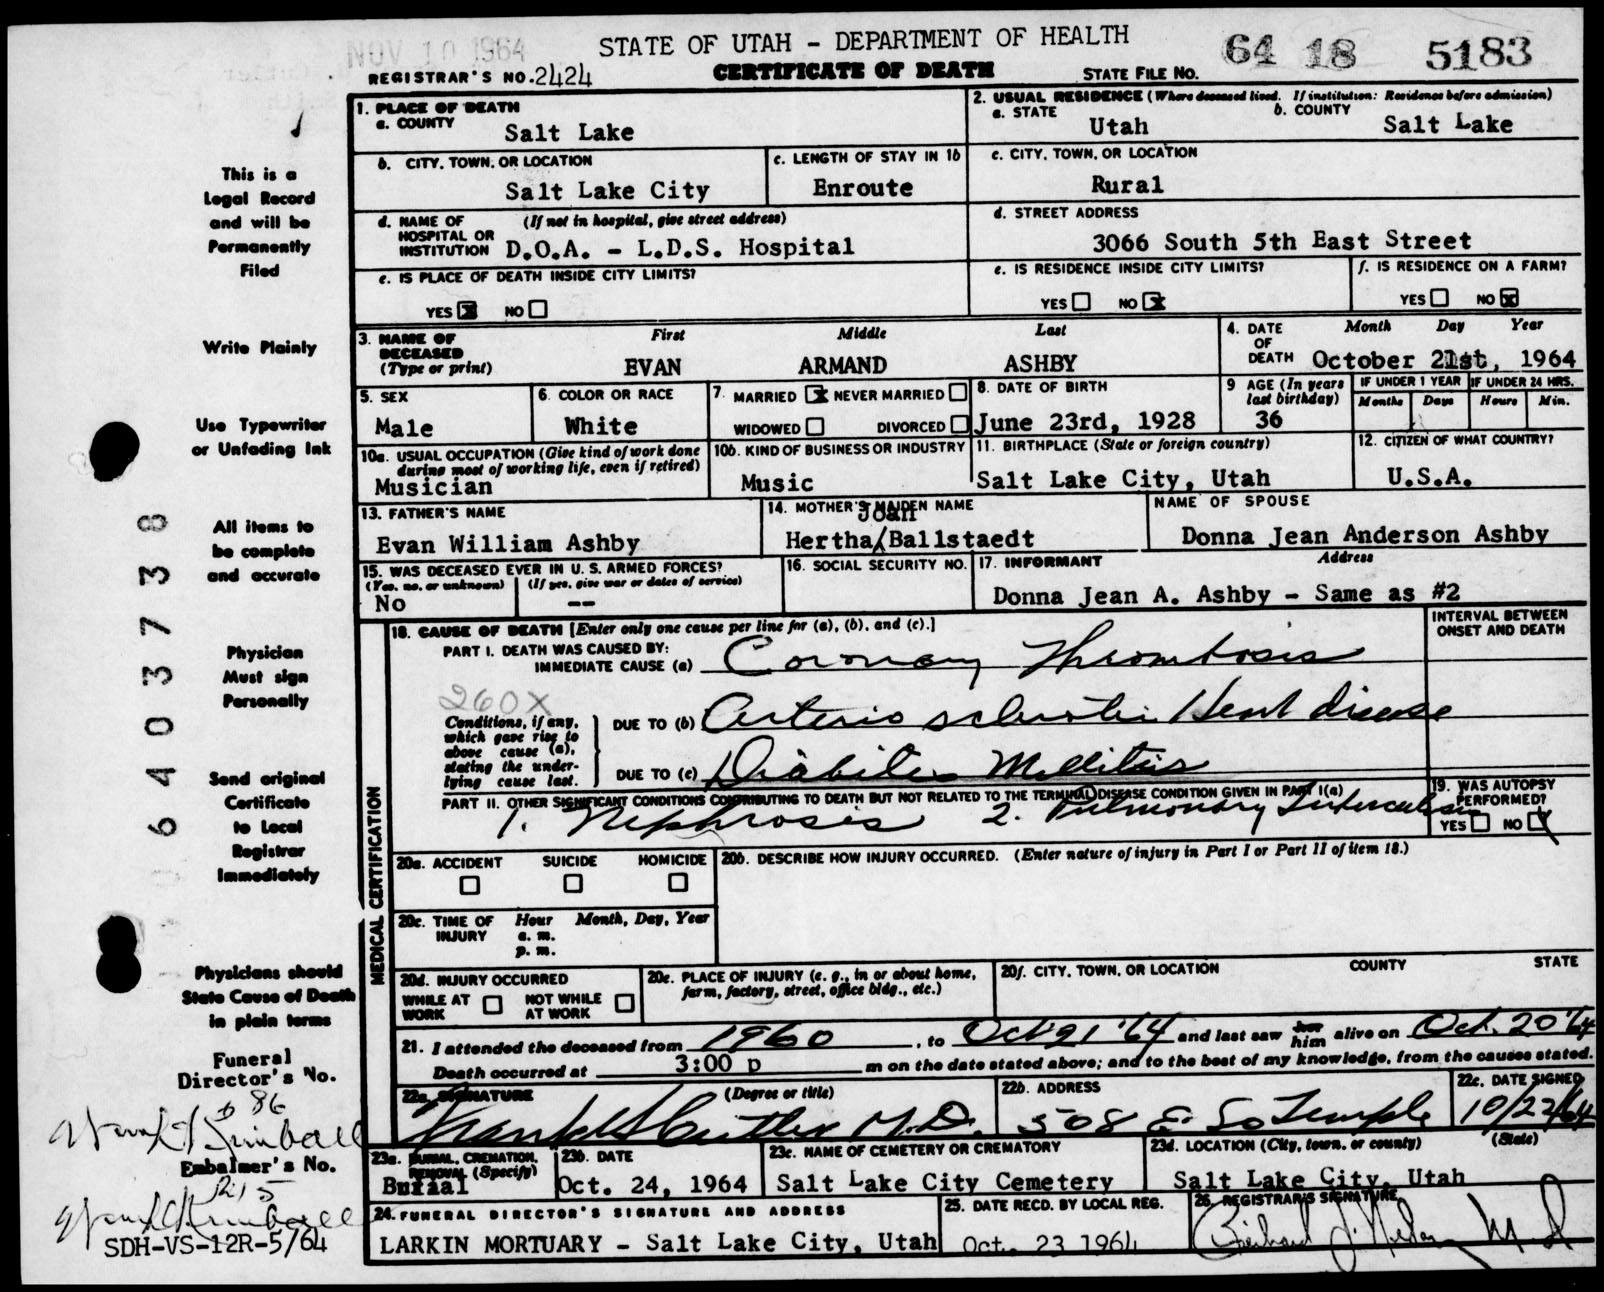 NOV 10 1964
STATE OF UTAH - DEPARTMENT OF HEALTH
64 18 5183
REGISTRAR'S NO. 2424
CERTIFICATE OF DEATH
STATE FILE NO.
1. PLACE OF DEATH
a. COUNTY
Salt Lake
2. USUAL RESIDENCE (Where deceased lived. If institution: Residence before admission)
a. STATE
Utah
b. COUNTY
Salt Lake
b. CITY, TOWN, OR LOCATION
Salt Lake City
c. LENGTH OF STAY IN 1b
Enroute
c. CITY, TOWN, OR LOCATION
Rural
d. NAME OF HOSPITAL OR INSTITUTION
(If not in hospital, give street address)
D.O.A. - L.D.S. Hospital
d. STREET ADDRESS
3066 South 5th East Street
e. IS PLACE OF DEATH INSIDE CITY LIMITS?
YES x NO
e. IS RESIDENCE INSIDE CITY LIMITS?
YES NO x
f. IS RESIDENCE ON A FARM?
YES NO x
3. NAME OF DECEASED (Type or print)
First Middle Last
EVAN ARMAND ASHBY
4. DATE OF DEATH
Month Day Year
October 21st, 1964
5. SEX
Male
6. COLOR OR RACE
White
7. MARRIED x NEVER MARRIED
WIDOWED DIVORCED
8. DATE OF BIRTH
June 23rd, 1928
9 AGE (In years last birthday)
36
IF UNDER 1 YEAR
Months Days
IF UNDER 24 HRS.
Hours Min.
10a. USUAL OCCUPATION (Give kind of work done during most of working life, even if retired)
Musician
10b. KIND OF BUSINESS OR INDUSTRY
Music
11. BIRTHPLACE (State or foreign country)
Salt Lake City, Utah
12. CITIZEN OF WHAT COUNTRY?
U.S.A.
13. FATHER'S NAME
Evan William Ashby
14. MOTHER'S MAIDEN NAME
Joan
Hertha/Ballstaedt
NAME OF SPOUSE
Donna Jean Anderson Ashby
15. WAS DECEASED EVER IN U. S. ARMED FORCES?
(Yes, no, or unknown) (If yes, give war or dates of service)
No --
16. SOCIAL SECURITY NO.
17. INFORMANT Address
Donna Jean A. Ashby - Same as #2
18. CAUSE OF DEATH [Enter only one cause per line for (a), (b), and (c).]
INTERVAL BETWEEN ONSET AND DEATH
PART I. DEATH WAS CAUSED BY:
IMMEDIATE CAUSE (a) Coronary Thrombosis
260X
Conditions, if any, which gave rise to above cause (a), stating the underlying cause last.
DUE TO (b) Arterio sclerotic Heart disease
DUE TO (c) Diabites Mellitus
PART II. OTHER SIGNIFICANT CONDITIONS CONTRIBUTING TO DEATH BUT NOT RELATED TO THE TERMINAL DISEASE CONDITION GIVEN IN PART I(a)
1. Nephrosis 2. Pulmonary Tuberculosis
19. WAS AUTOPSY PERFORMED?
YES NO x
MEDICAL CERTIFICATION
20a. ACCIDENT SUICIDE HOMICIDE
20b. DESCRIBE HOW INJURY OCCURRED. (Enter nature of injury in Part I or Part II of item 18.)
20c. TIME OF INJURY
Hour Month, Day, Year
a. m.
p. m.
20d. INJURY OCCURRED
WHILE AT WORK NOT WHILE AT WORK
20e. PLACE OF INJURY (e. g., in or about home, farm, factory, street, office bldg., etc.)
20f. CITY, TOWN, OR LOCATION COUNTY STATE
21. I attended the deceased from 1960, to Oct 21 '64 and last saw her him alive on Oct. 20 '64
Death occurred at 3:00 p m on the date stated above; and to the best of my knowledge, from the causes stated.
22a. SIGNATURE (Degree or title)
Frank H Cutler M.D.
22b. ADDRESS
508 E So Temple
22c. DATE SIGNED
10/22/64
23a. BURIAL, CREMATION, REMOVAL (Specify)
Burial
23b. DATE
Oct. 24, 1964
23c. NAME OF CEMETERY OR CREMATORY
Salt Lake City Cemetery
23d. LOCATION (City, town, or county) (State)
Salt Lake City, Utah
24. FUNERAL DIRECTOR'S SIGNATURE AND ADDRESS
LARKIN MORTUARY - Salt Lake City, Utah
25. DATE RECD. BY LOCAL REG.
Oct. 23 1964
26. REGISTRAR'S SIGNATURE
This is a
Legal Record
and will be
Permanently
Filed
Write Plainly
Use Typewriter
or Unfading Ink
All items to
be complete
and accurate
Physician
Must sign
Personally
Send original
Certificate
to Local
Registrar
Immediately
Physicians should
State Cause of Death
in plain terms
Funeral
Director's No.
86
Kimball
Embalmer's No.
215
Kimball
SDH-VS-12R-5/64
0 6 4 0 3 7 3 8